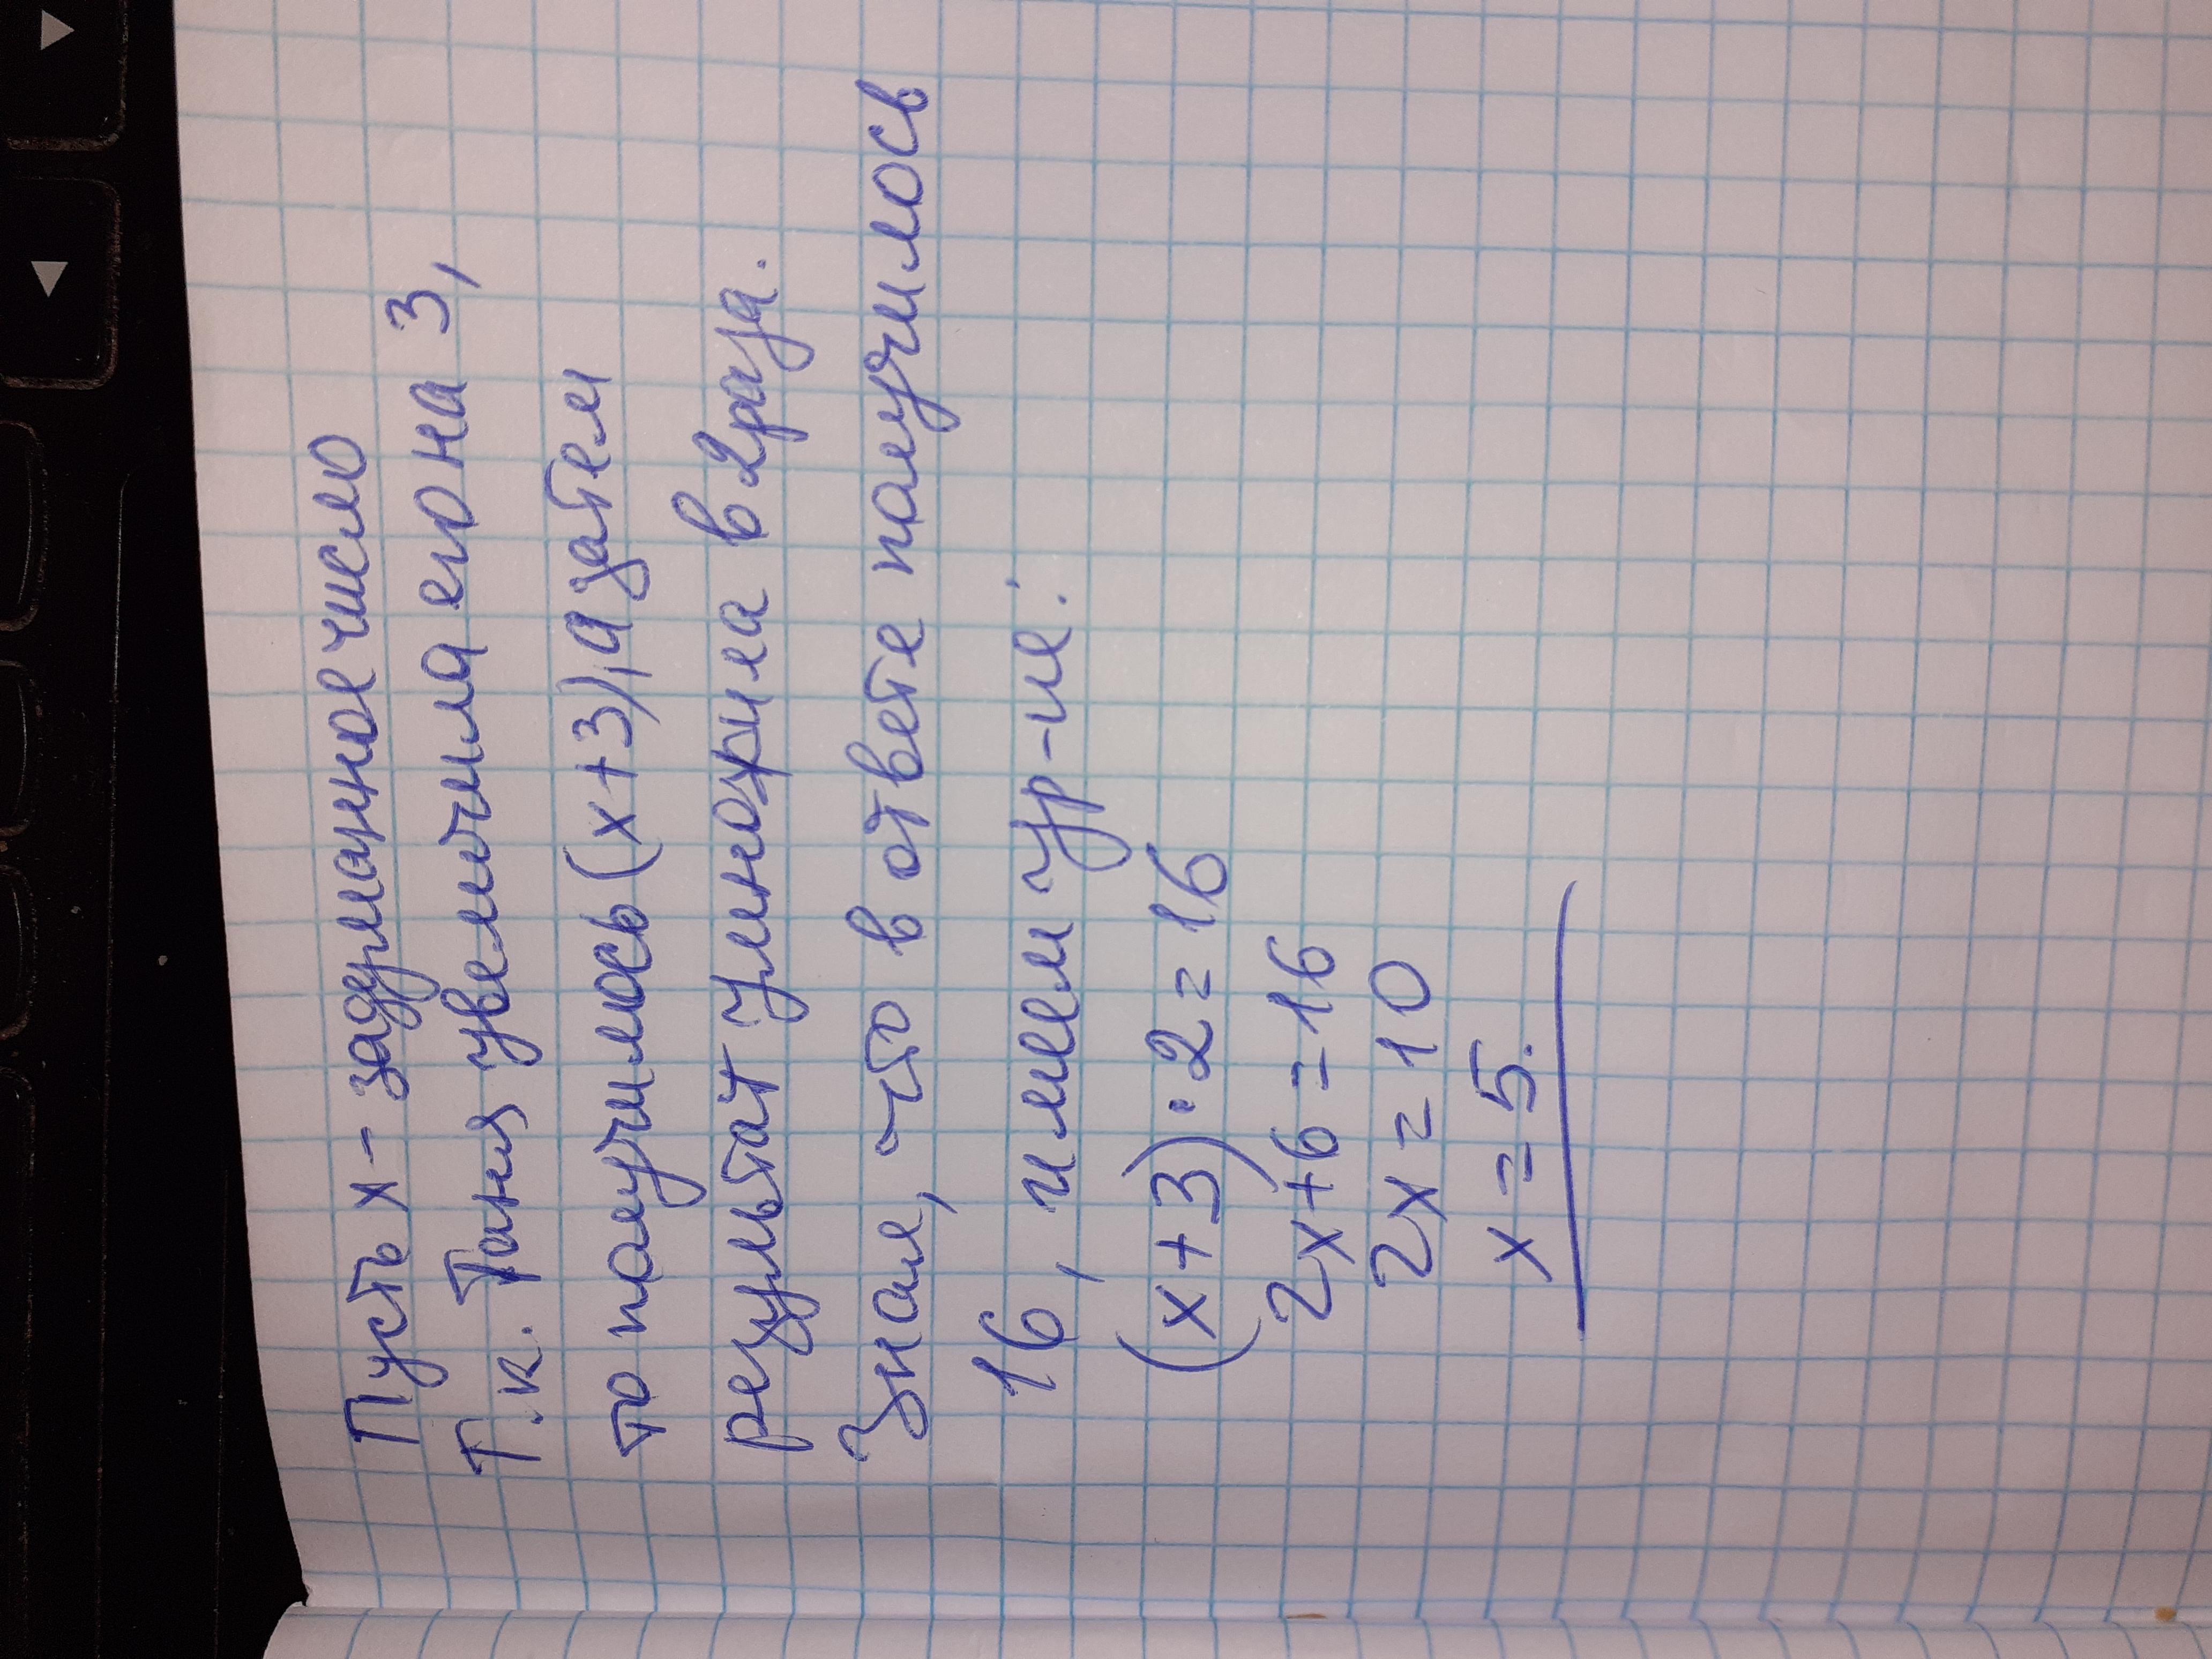 Пусть х - задуманное число
Т.к. Таня увеличила его на 3,
то получилось (х+3), а затем
результат умножила в 2 раза.
Зная, что в ответе получилось
16, имеем ур-ие:
(х+3)·2=16
2х+6=16
2х=10
х=5.